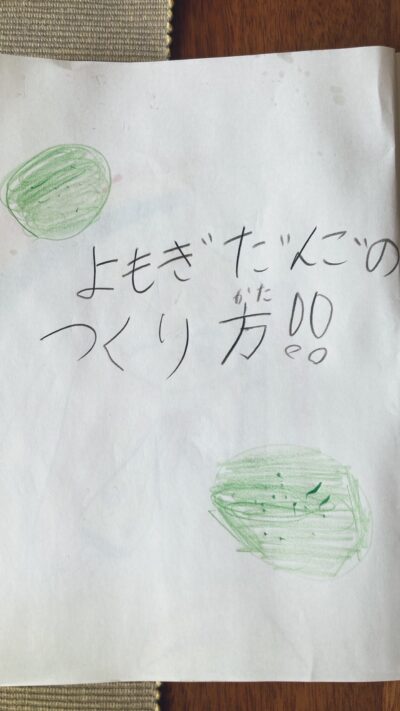 よもぎだんごの
つくり方!!
かた